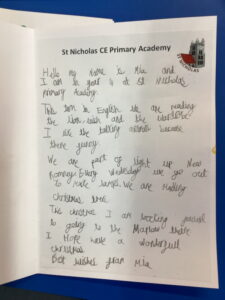 St Nicholas CE Primary Academy
ST NICHOLAS
Hello my name is Mia and
I am in year 4 at St Nicholas
primary Academy.
This term in English we are reading
the lion witch and the wardrobe
I like the talking animals because
there funny
We are part of light up New
Romney Every Wednesday we go out
to make lamps. We are making
christmas trees
This christmas I am looking forward
to going to the Marlowe theatre
I Hope have a wonderfull
christmas
Best wishes from Mia